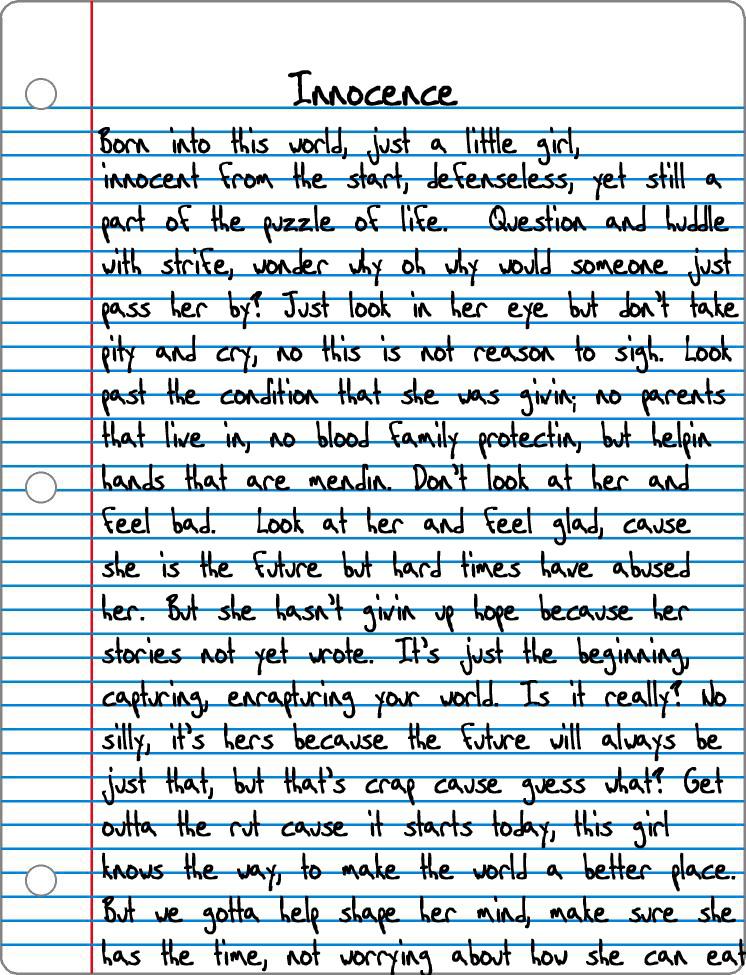 Innocence
Born into this world, just a little girl,
innocent from the start, defenseless, yet still a
part of the puzzle of life. Question and huddle
with strife, wonder why oh why would someone just
pass her by? Just look in her eye but don't take
pity and cry, no this is not reason to sigh. Look
past the condition that she was givin; no parents
that live in, no blood family protectin, but helpin
hands that are mendin. Don't look at her and
feel bad. Look at her and feel glad, cause
she is the future but hard times have abused
her. But she hasn't givin up hope because her
stories not yet wrote. It's just the beginning,
capturing, enrapturing your world. Is it really? No
silly, it's hers because the future will always be
just that, but that's crap cause guess what? Get
outta the rut cause it starts today, this girl
knows the way, to make the world a better place.
But we gotta help shape her mind, make sure she
has the time, not worrying about how she can eat